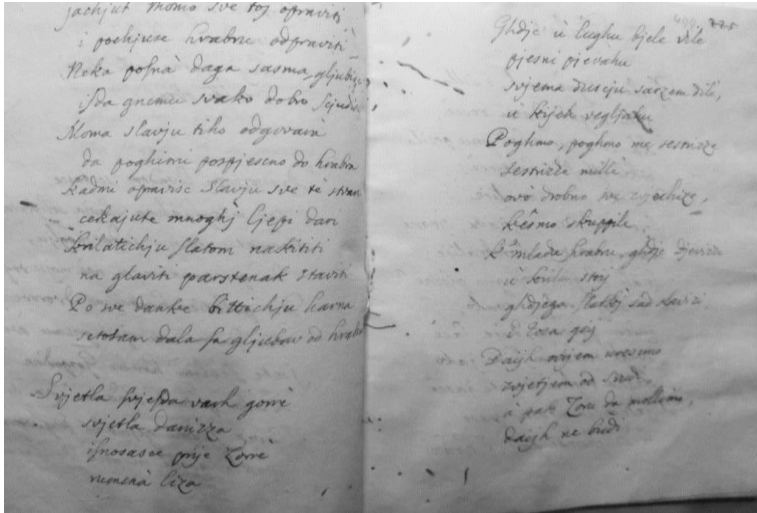 jachjut momo sve toj opraviti
i pochjuse hrabru odpraviti
Neka posna daga sasma gljubi
isda gnemu svako dobro
Moma slavju tiho odgovara
da poghimi pospjescno do hrabra
Kadmi opravisc slavju sve te stvari
cekajute mnoghj ljepi dari
krilatichju slatom nakititi
na glaviti parstenak staviti
Po we danke bittichju harna
setosam dala sa gljubav od
Svjetla svjesda varh gorre
svjetla danizza
isnosasce prije Zorre
rumena liza
Ghdje u lughu bjele vile
pjesni pjevahu
svjema duscju sarzem dile,
u kijeh vegljahu
Poghmo, poghmo me sestrizze
sestrizze milli
ovo drobno we
kesmo skuppili
mlada hrabru, ghdje djevizza
u krilu stoj
ghdjega slatkj sad
Zora
Daijh ovijem
zvjetjem od
a pak Zoru da mollimo,
daijh ne budi